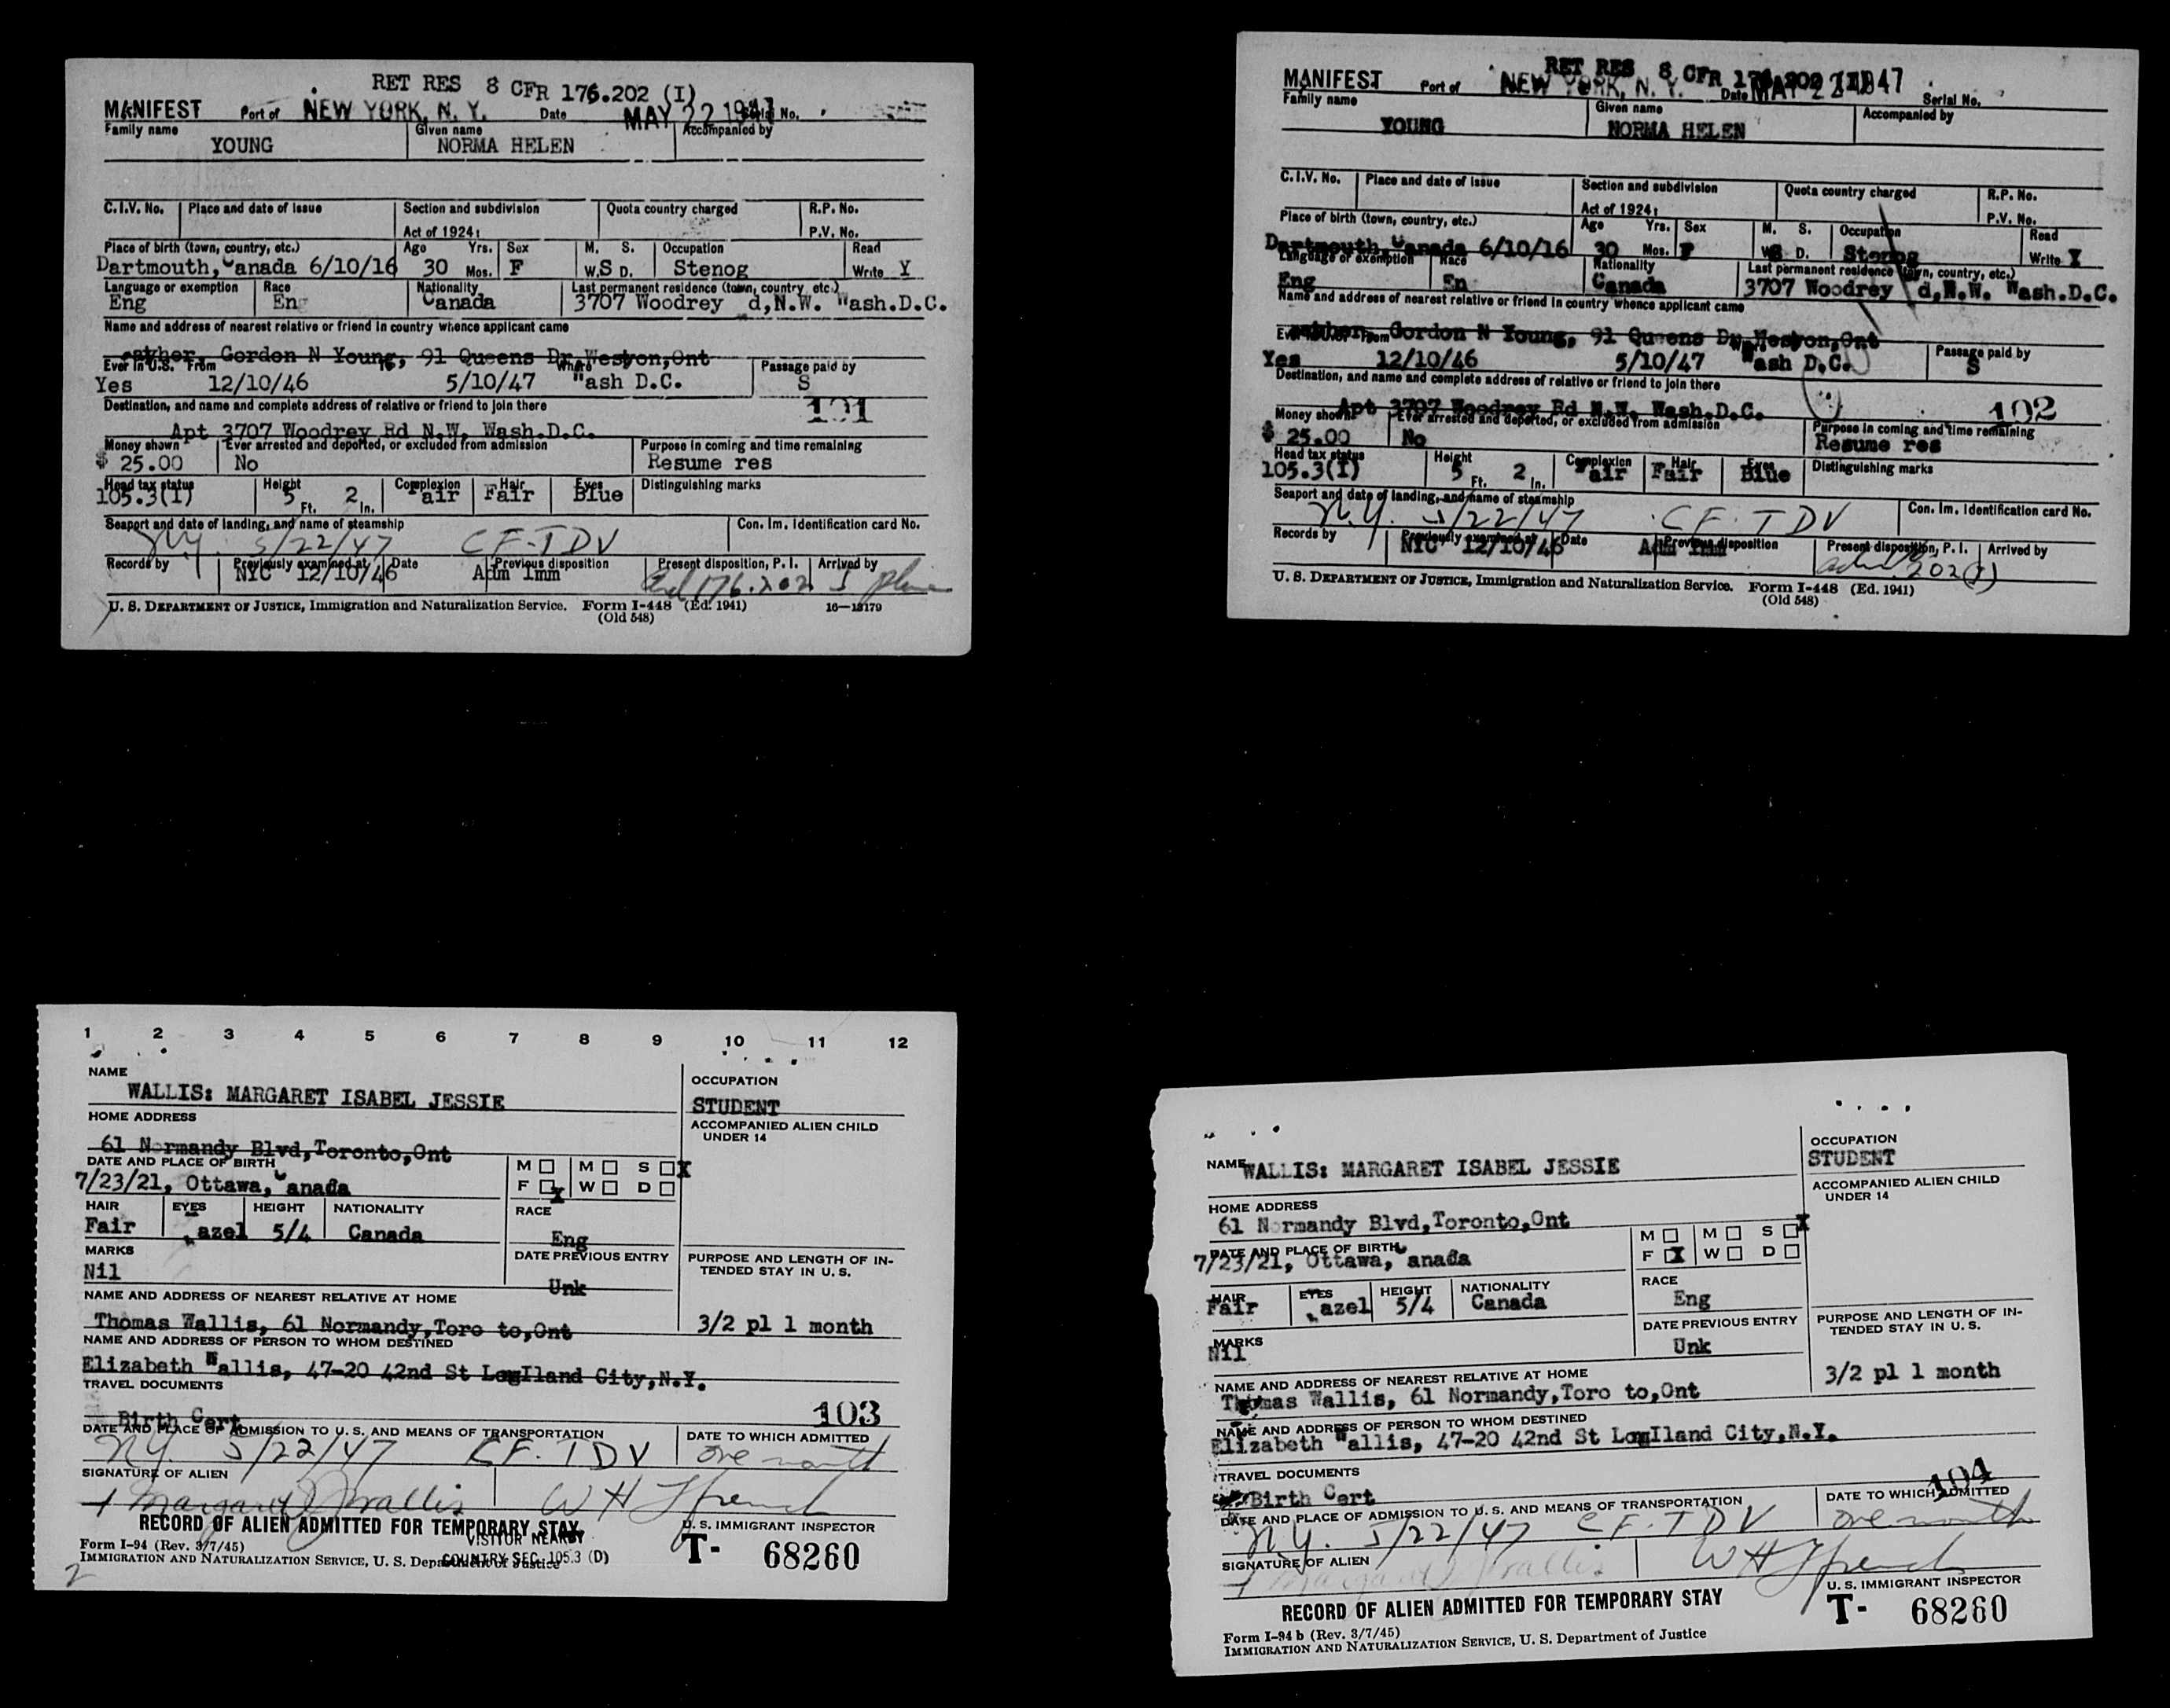 RET RES 8 CFR 176.202 (I)
MANIFEST Port of NEW YORK, N. Y. Date MAY 22 1947 Serial No.
Family name Given name Accompanied by
YOUNG NORMA HELEN
C.I.V. No. Place and date of issue Section and subdivision Quota country charged R.P. No.
Act of 1924: P.V. No.
Place of birth (town, country, etc.) Age Yrs. Sex M. S. Occupation Read
Dartmouth, Canada 6/10/16 30 Mos. F W.S D. Stenog Write Y
Language or exemption Race Nationality Last permanent residence (town, country, etc.)
Eng En Canada 3707 Woodrey d,N.W. Wash.D.C.
Name and address of nearest relative or friend in country whence applicant came
Gordon N Young, 91 Queens Dr Weston,Ont
Ever in U.S. From To Where Passage paid by
Yes 12/10/46 5/10/47 Wash D.C. S
Destination, and name and complete address of relative or friend to join there
101
Apt 3707 Woodrey Rd N.W. Wash.D.C.
Money shown Ever arrested and deported, or excluded from admission Purpose in coming and time remaining
$ 25.00 No Resume res
Head tax status Height Complexion Hair Eyes Distinguishing marks
105.3(I) 5 Ft. 2 In. Fair Fair Blue
Seaport and date of landing, and name of steamship Con. Im. Identification card No.
N.Y. 5/22/47 CF-TDV
Records by Previously examined at Date Previous disposition Present disposition, P. I. Arrived by
NYC 12/10/46 Adm Imm 176.202 I plane
U. S. DEPARTMENT OF JUSTICE, Immigration and Naturalization Service. Form I-448 (Ed. 1941) 16—13179
(Old 548)
RET RES 8 CFR 176.202 (I)
MANIFEST Port of NEW YORK, N. Y. Date MAY 22 1947 Serial No.
Family name Given name Accompanied by
YOUNG NORMA HELEN
C.I.V. No. Place and date of issue Section and subdivision Quota country charged R.P. No.
Act of 1924: P.V. No.
Place of birth (town, country, etc.) Age Yrs. Sex M. S. Occupation Read
Dartmouth, Canada 6/10/16 30 Mos. F W.S D. Stenog Write Y
Language or exemption Race Nationality Last permanent residence (town, country, etc.)
Eng En Canada 3707 Woodrey d,N.W. Wash.D.C.
Name and address of nearest relative or friend in country whence applicant came
Gordon N Young, 91 Queens Dr Weston,Ont
Yes 12/10/46 5/10/47 Wash D.C. Passage paid by S
Destination, and name and complete address of relative or friend to join there
Apt 3707 Woodrey Rd N.W. Wash.D.C. 102
Money shown Ever arrested and deported, or excluded from admission Purpose in coming and time remaining
$ 25.00 No Resume res
Head tax status Height Complexion Hair Eyes Distinguishing marks
105.3(I) 5 Ft. 2 In. Fair Fair Blue
Seaport and date of landing, and name of steamship Con. Im. Identification card No.
N.Y. 5/22/47 CF-TDV
Records by Previously examined at Date Previous disposition Present disposition, P. I. Arrived by
NYC 12/10/46 Adm Imm adm. 202(I)
U. S. DEPARTMENT OF JUSTICE, Immigration and Naturalization Service. Form I-448 (Ed. 1941)
(Old 548)
1 2 3 4 5 6 7 8 9 10 11 12
NAME OCCUPATION
WALLIS: MARGARET ISABEL JESSIE STUDENT
HOME ADDRESS ACCOMPANIED ALIEN CHILD
UNDER 14
61 Normandy Blvd,Toronto,Ont
DATE AND PLACE OF BIRTH M M S X
7/23/21, Ottawa, Canada F X W D
HAIR EYES HEIGHT NATIONALITY RACE
Fair azel 5/4 Canada Eng
MARKS DATE PREVIOUS ENTRY PURPOSE AND LENGTH OF IN-
TENDED STAY IN U. S.
Nil Unk
NAME AND ADDRESS OF NEAREST RELATIVE AT HOME
Thomas Wallis, 61 Normandy,Toro to,Ont 3/2 pl 1 month
NAME AND ADDRESS OF PERSON TO WHOM DESTINED
Elizabeth Wallis, 47-20 42nd St LongIland City,N.Y.
TRAVEL DOCUMENTS
Birth Cert 103
DATE AND PLACE OF ADMISSION TO U. S. AND MEANS OF TRANSPORTATION DATE TO WHICH ADMITTED
N.Y. 5/22/47 CF-TDV one month
SIGNATURE OF ALIEN
Margaret J Wallis W H French
RECORD OF ALIEN ADMITTED FOR TEMPORARY STAY U. S. IMMIGRANT INSPECTOR
VISITOR NEARBY
Form I-94 (Rev. 3/7/45) T- 68260
IMMIGRATION AND NATURALIZATION SERVICE, U. S. Department of Justice
COUNTRY SEC. 105.3 (D)
2
OCCUPATION
NAME WALLIS: MARGARET ISABEL JESSIE STUDENT
ACCOMPANIED ALIEN CHILD
UNDER 14
HOME ADDRESS
61 Normandy Blvd,Toronto,Ont
DATE AND PLACE OF BIRTH M M S X
7/23/21, Ottawa, Canada F X W D
HAIR EYES HEIGHT NATIONALITY RACE
Fair azel 5/4 Canada Eng
MARKS DATE PREVIOUS ENTRY PURPOSE AND LENGTH OF IN-
TENDED STAY IN U. S.
Nil Unk
NAME AND ADDRESS OF NEAREST RELATIVE AT HOME
Thomas Wallis, 61 Normandy,Toro to,Ont 3/2 pl 1 month
NAME AND ADDRESS OF PERSON TO WHOM DESTINED
Elizabeth Wallis, 47-20 42nd St LongIland City,N.Y.
TRAVEL DOCUMENTS
Birth Cert 104
DATE AND PLACE OF ADMISSION TO U. S. AND MEANS OF TRANSPORTATION DATE TO WHICH ADMITTED
N.Y. 5/22/47 CF-TDV one month
SIGNATURE OF ALIEN
Margaret J Wallis W H French
U. S. IMMIGRANT INSPECTOR
RECORD OF ALIEN ADMITTED FOR TEMPORARY STAY
T- 68260
Form I-94 b (Rev. 3/7/45)
IMMIGRATION AND NATURALIZATION SERVICE, U. S. Department of Justice